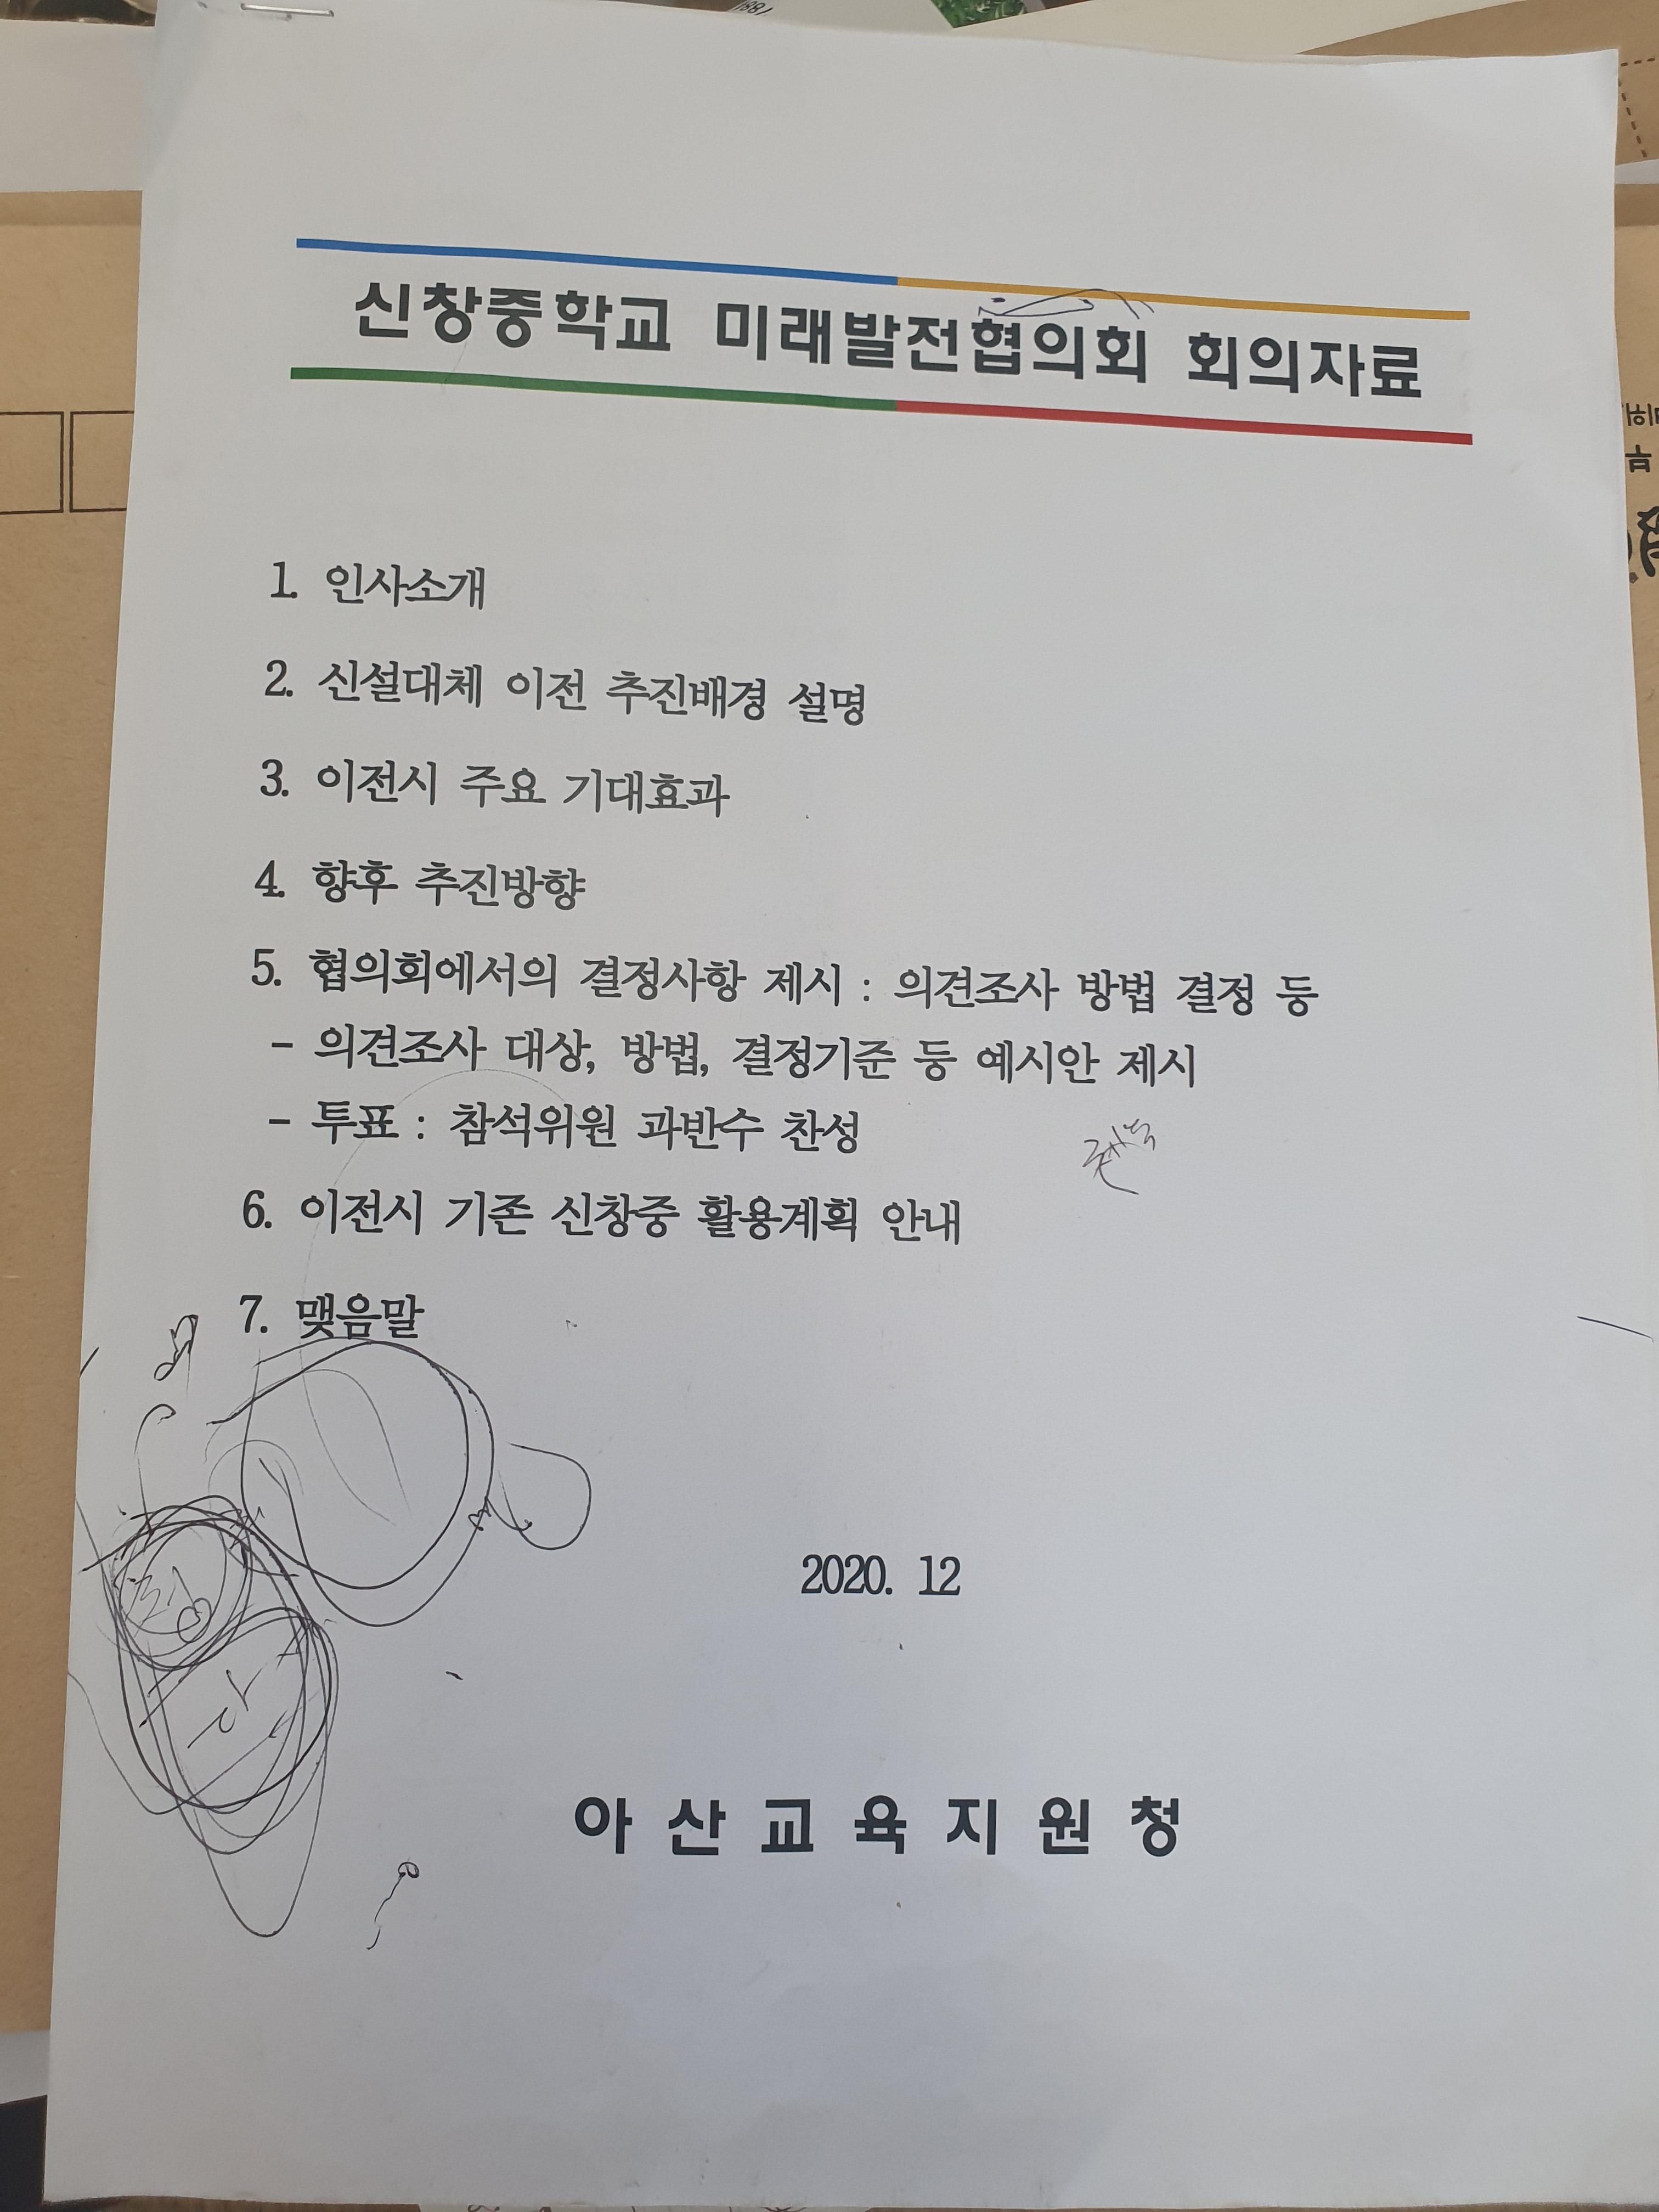 신창중학교 미래발전협의회 회의자료
1. 인사소개
2. 신설대체 이전 추진배경 설명
3. 이전시 주요 기대효과
4. 향후 추진방향
5. 협의회에서의 결정사항 제시 : 의견조사 방법 결정 등
- 의견조사 대상, 방법, 결정기준 등 예시안 제시
- 투표 : 참석위원 과반수 찬성
6. 이전시 기존 신창중 활용계획 안내
7. 맺음말
2020. 12
아산교육지원청